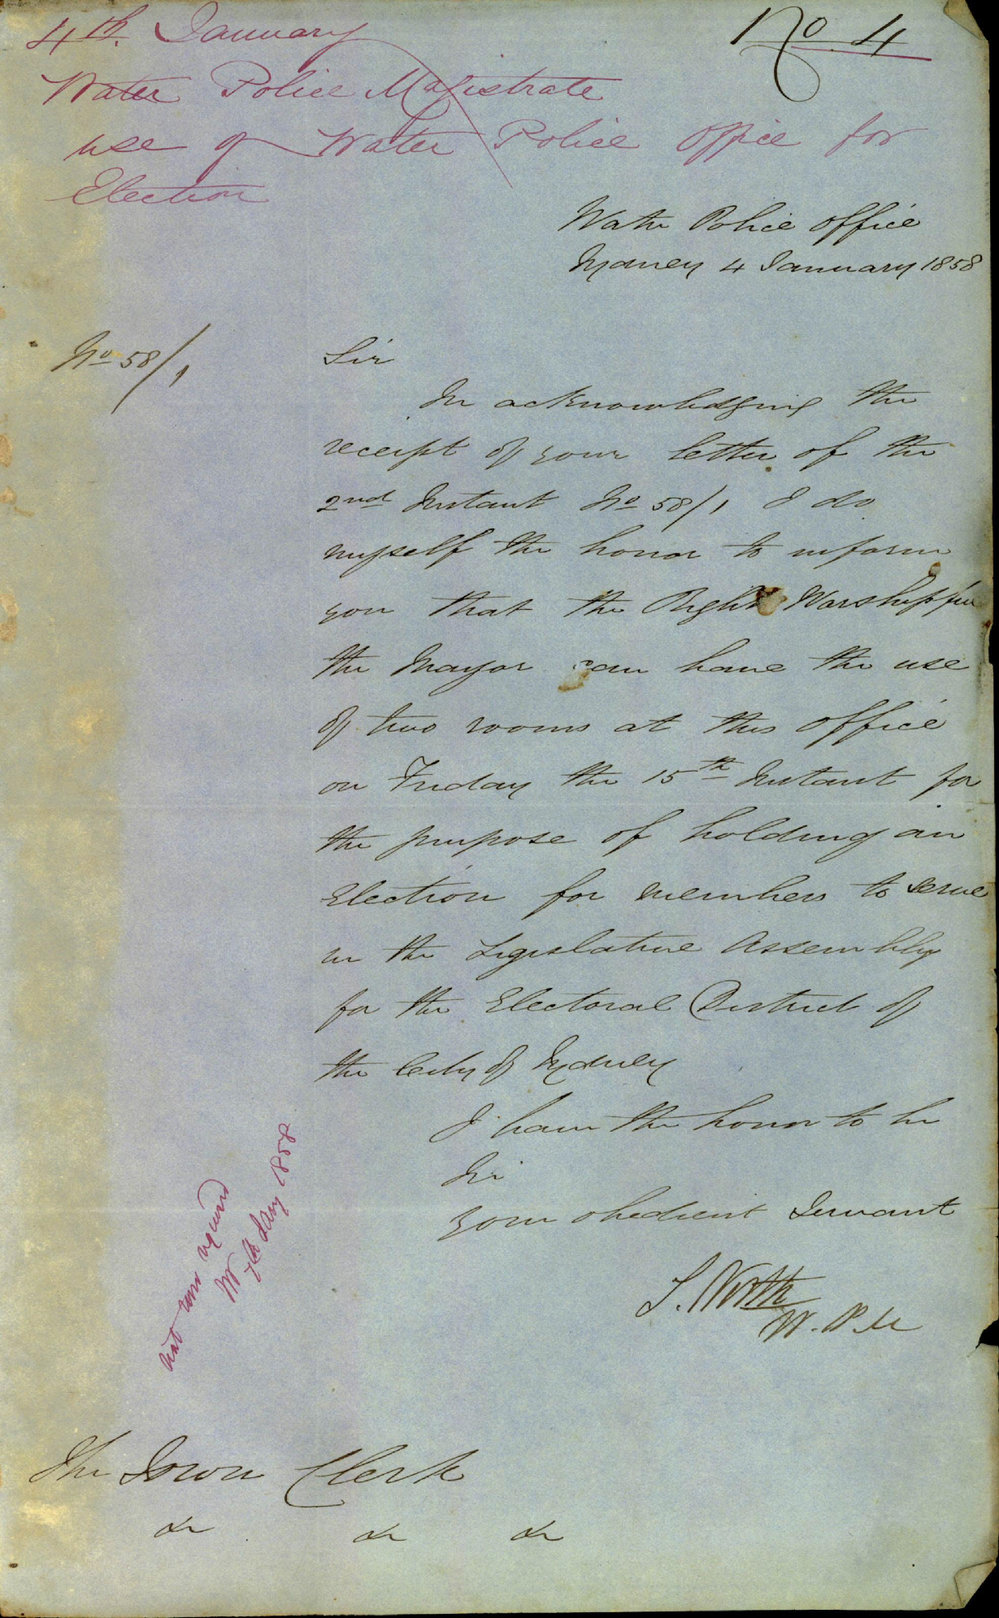 4th. January
No. 4
Water Police Magistrate
use of Water Police Office for
Election
Water Police Office
Sydney 4 January 1858
No 58/1
Sir
In acknowledging the
receipt of your letter of the
2nd Instant No 58/1 I do
myself the honor to inform
you that the Right Worshipful
the Mayor can have the use
of two rooms at this office
on Friday the 15th Instant for
the purpose of holding an
Election for members to serve
in the Legislative Assembly
for the Electoral District of
the City of Sydney
I have the honor to be
Sir
your obedient Servant
S. North
W. P. M
not now required
7th Jany 1858
The Town Clerk
&c &c &c